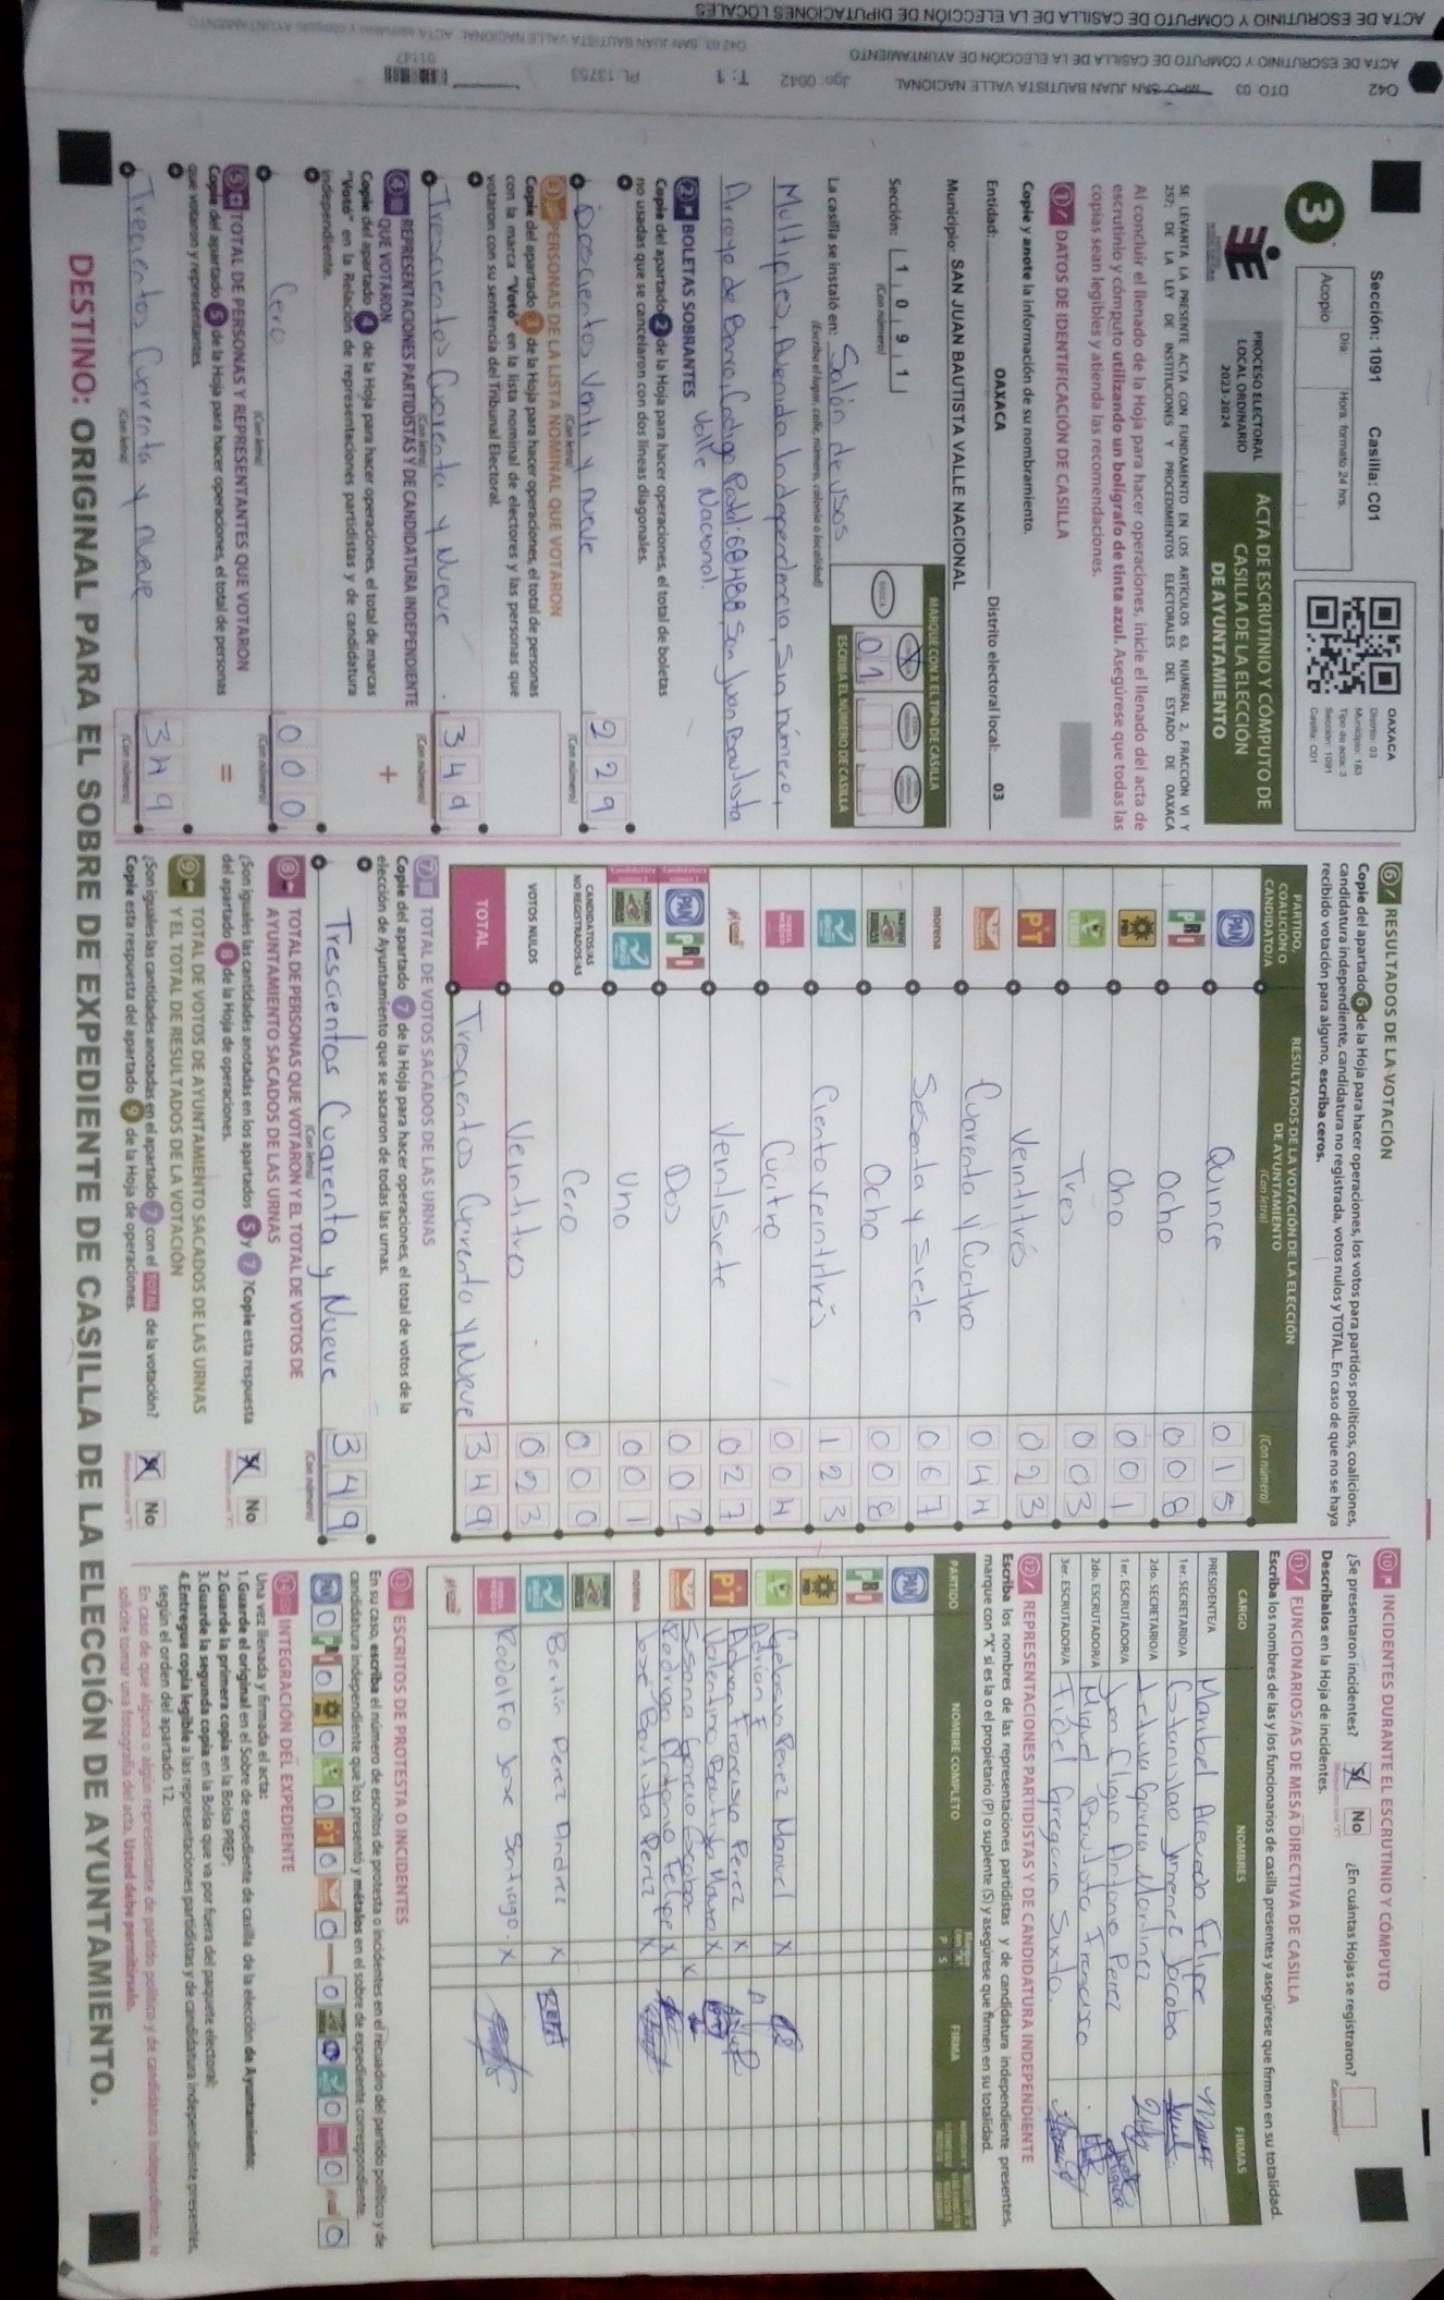 ACTA DE ESCRUTINIO Y CÓMPUTO DE CASILLA DE LA ELECCIÓN DE DIPUTACIONES LOCALES
ACTA DE ESCRUTINIO Y CÓMPUTO DE CASILLA DE LA ELECCIÓN DE AYUNTAMIENTO
042 DTO 03 SAN JUAN BAUTISTA VALLE NACIONAL Jgo: 0042 T: 1 PL: 13753
01147
Sección: 1091 Casilla: C01
Día Hora: formato 24 hrs.
Acopio
3
OAXACA
Distrito: 03
Municipio: 183
Tipo de acta: 3
Sección: 1091
Casilla: C01
PROCESO ELECTORAL
LOCAL ORDINARIO
2023-2024
ACTA DE ESCRUTINIO Y CÓMPUTO DE
CASILLA DE LA ELECCIÓN
DE AYUNTAMIENTO
SE LEVANTA LA PRESENTE ACTA CON FUNDAMENTO EN LOS ARTÍCULOS 63, NUMERAL 2, FRACCIÓN VI Y
257; DE LA LEY DE INSTITUCIONES Y PROCEDIMIENTOS ELECTORALES DEL ESTADO DE OAXACA
Al concluir el llenado de la Hoja para hacer operaciones, inicie el llenado del acta de
escrutinio y cómputo utilizando un bolígrafo de tinta azul. Asegúrese que todas las
copias sean legibles y atienda las recomendaciones.
1 DATOS DE IDENTIFICACIÓN DE CASILLA
Copie y anote la información de su nombramiento.
Entidad: OAXACA Distrito electoral local: 03
Municipio: SAN JUAN BAUTISTA VALLE NACIONAL
Sección: 1 0 9 1
(Con número)
MARQUE CON X EL TIPO DE CASILLA
01
ESCRIBA EL NÚMERO DE CASILLA
La casilla se instaló en: Salón de usos
(Escriba el lugar, calle, número, colonia o localidad)
Multiples, Avenida Independencia, Sin número,
Arroyo de Banco, Codigo Postal: 68488, San Juan Bautista
Valle Nacional.
2 BOLETAS SOBRANTES
Copie del apartado 2 de la Hoja para hacer operaciones, el total de boletas
no usadas que se cancelaron con dos líneas diagonales.
Doscientos Venti y nueve 229
(Con letra) (Con número)
3 PERSONAS DE LA LISTA NOMINAL QUE VOTARON
Copie del apartado 3 de la Hoja para hacer operaciones, el total de personas
con la marca "Votó" en la lista nominal de electores y las personas que
votaron con su sentencia del Tribunal Electoral.
Trescientos Cuarenta y Nueve 349
(Con letra) (Con número)
4 REPRESENTACIONES PARTIDISTAS Y DE CANDIDATURA INDEPENDIENTE
QUE VOTARON +
Copie del apartado 4 de la Hoja para hacer operaciones, el total de marcas
"Votó" en la Relación de representaciones partidistas y de candidatura
independiente.
Cero 000
(Con letra) (Con número)
5 TOTAL DE PERSONAS Y REPRESENTANTES QUE VOTARON
Copie del apartado 5 de la Hoja para hacer operaciones, el total de personas =
que votaron y representantes.
Trecientos Cuarenta y nueve 349
(Con letra) (Con número)
6 RESULTADOS DE LA VOTACIÓN
Copie del apartado 6 de la Hoja para hacer operaciones, los votos para partidos políticos, coaliciones,
candidatura independiente, candidatura no registrada, votos nulos y TOTAL. En caso de que no se haya
recibido votación para alguno, escriba ceros.
PARTIDO, COALICIÓN O CANDIDATO/A
RESULTADOS DE LA VOTACIÓN DE LA ELECCIÓN DE AYUNTAMIENTO
(Con letra) (Con número)
PAN Quince 015
PRI Ocho 008
PRD Uno 001
VERDE Tres 003
PT Veintitrés 023
Cuarenta y Cuatro 044
morena Sesenta y siete 067
Ocho 008
Ciento veintitrés 123
Cuatro 004
Veintisiete 027
PAN PRI Dos 002
Uno 001
CANDIDATOS/AS NO REGISTRADOS/AS Cero 000
VOTOS NULOS Veintitres 023
TOTAL Trescientos Cuarenta y Nueve 349
7 TOTAL DE VOTOS SACADOS DE LAS URNAS
Copie del apartado 7 de la Hoja para hacer operaciones, el total de votos de la
elección de Ayuntamiento que se sacaron de todas las urnas.
Trescientos Cuarenta y Nueve 349
(Con letra) (Con número)
8 TOTAL DE PERSONAS QUE VOTARON Y EL TOTAL DE VOTOS DE
AYUNTAMIENTO SACADOS DE LAS URNAS
¿Son iguales las cantidades anotadas en los apartados 5 y 7? Copie esta respuesta
del apartado 8 de la Hoja de operaciones. Sí No
9 TOTAL DE VOTOS DE AYUNTAMIENTO SACADOS DE LAS URNAS
Y EL TOTAL DE RESULTADOS DE LA VOTACIÓN
¿Son iguales las cantidades anotadas en el apartado 7 con el TOTAL de la votación?
Copie esta respuesta del apartado 9 de la Hoja de operaciones. Sí No
10 INCIDENTES DURANTE EL ESCRUTINIO Y CÓMPUTO
¿Se presentaron incidentes? Sí No ¿En cuántas Hojas se registraron?
(Con número)
Descríbalos en la Hoja de incidentes.
11 FUNCIONARIOS/AS DE MESA DIRECTIVA DE CASILLA
Escriba los nombres de las y los funcionarios de casilla presentes y asegúrese que firmen en su totalidad.
CARGO NOMBRES FIRMAS
PRESIDENTE/A Maribel Acevedo Felipe
1er. SECRETARIO/A Estanislao Jimenez Jacobo
2do. SECRETARIO/A Leticia Garcia Martinez
1er. ESCRUTADOR/A Antonio Perez
2do. ESCRUTADOR/A Miguel Bautista Francisco
3er. ESCRUTADOR/A Fidel Gregorio Sixto.
12 REPRESENTACIONES PARTIDISTAS Y DE CANDIDATURA INDEPENDIENTE
Escriba los nombres de las representaciones partidistas y de candidatura independiente presentes,
marque con "X" si es la o el propietario (P) o suplente (S) y asegúrese que firmen en su totalidad.
PARTIDO NOMBRE COMPLETO P S FIRMA
PAN
PRI
PRD
VERDE Gelacio Perez Manuel X
Adrian F
PT Adrian Francisco Perez X
Valentina Bautista X
Susana Garcia Escobar X
Rodrigo Antonio Felipe X
morena José Bautista Perez X
Berlin Perez Andres X
Rodolfo Jose Santiago. X
13 ESCRITOS DE PROTESTA O INCIDENTES
En su caso, escriba el número de escritos de protesta o incidentes en el recuadro del partido político y de
candidatura independiente que los presentó y métalos en el sobre de expediente correspondiente.
0 0 0 0 0 0 0 0 0 0 0
14 INTEGRACIÓN DEL EXPEDIENTE
Una vez llenada y firmada el acta:
1.Guarde el original en el Sobre de expediente de casilla de la elección de Ayuntamiento;
2.Guarde la primera copia en la Bolsa PREP;
3.Guarde la segunda copia en la Bolsa que va por fuera del paquete electoral;
4.Entregue copia legible a las representaciones partidistas y de candidatura independiente presentes,
según el orden del apartado 12.
En caso de que alguna o algún representante de partido político y de candidatura independiente, le
solicite tomar una fotografía del acta. Usted debe permitírselo.
DESTINO: ORIGINAL PARA EL SOBRE DE EXPEDIENTE DE CASILLA DE LA ELECCIÓN DE AYUNTAMIENTO.